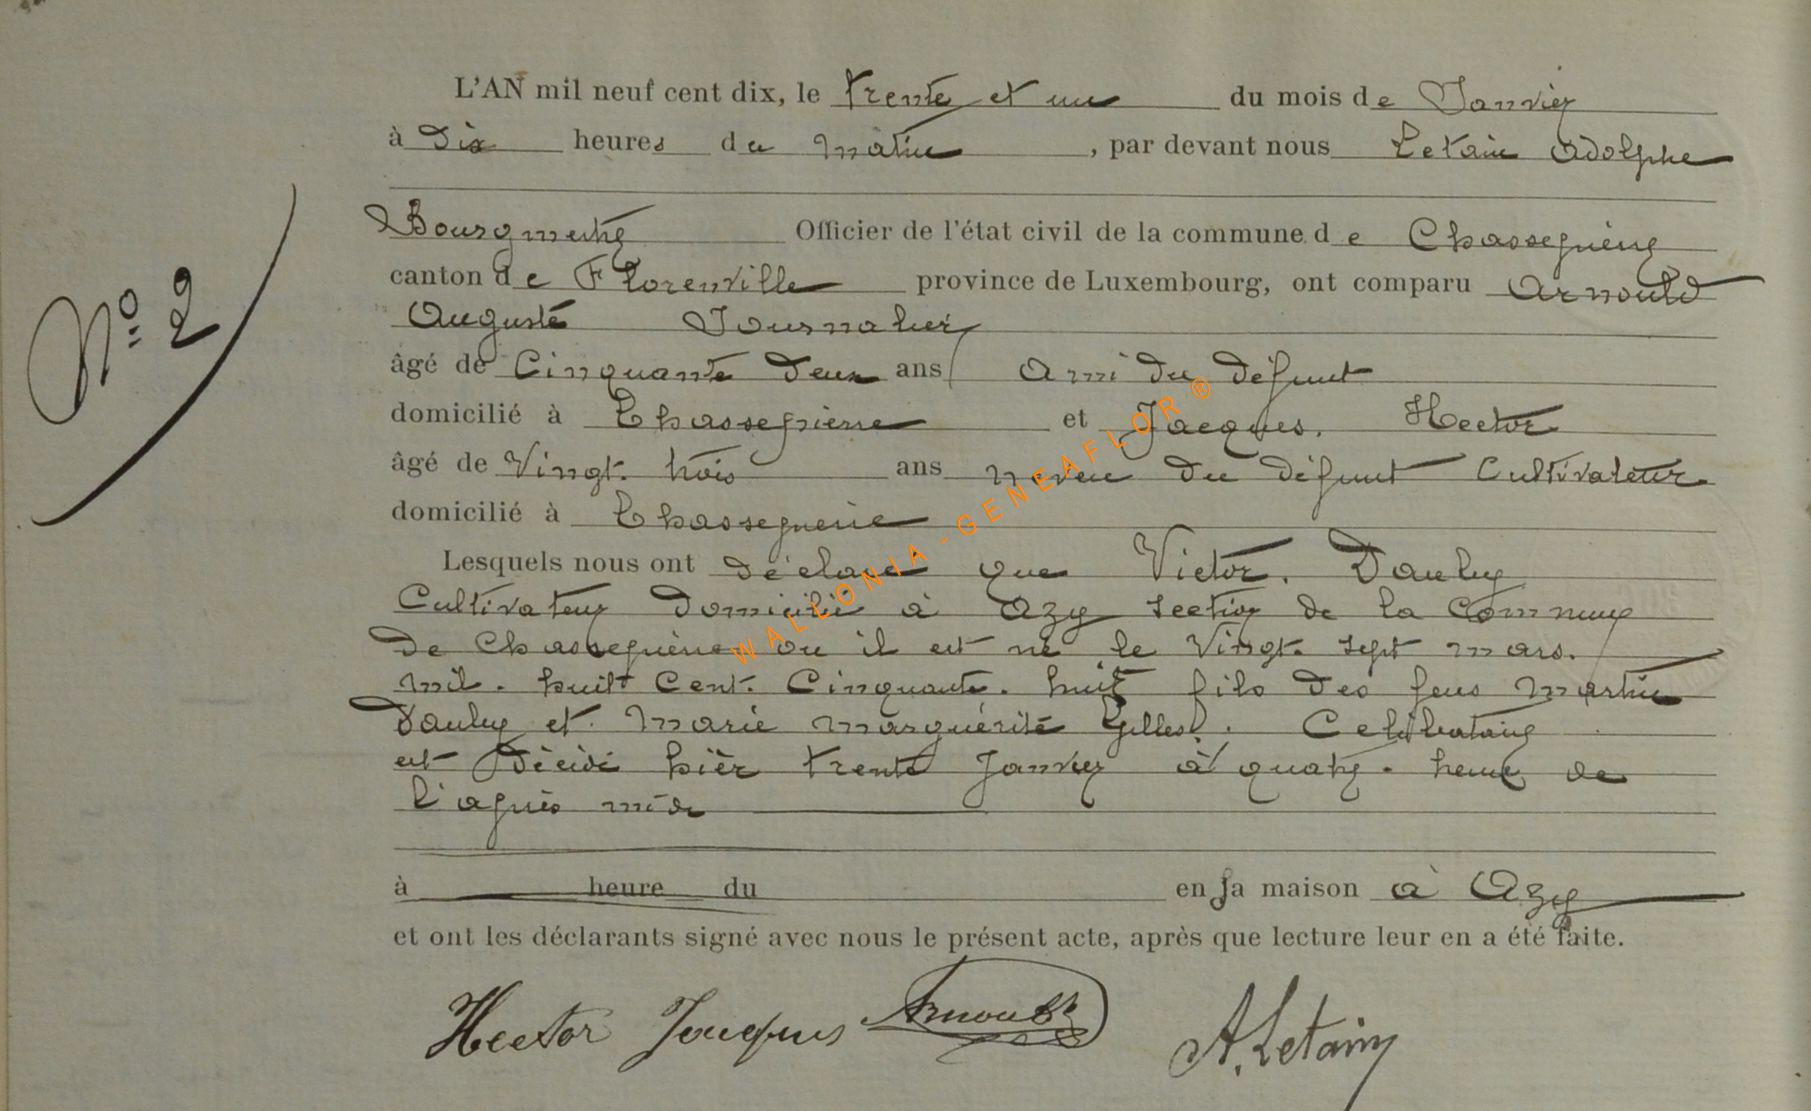 L'AN mil neuf cent dix, le trente et un du mois de Janvier
à Dix heures du matin, par devant nous Letain Adolphe
Bourgmestre Officier de l'état civil de la commune de Chassepierre
canton de Florenville province de Luxembourg, ont comparu Arnould
Auguste Journalier
âgé de Cinquante deux ans Ami du défunt
domicilié à Chassepierre et Jacques. Hector
âgé de Vingt. trois ans neveu du défunt Cultivateur
domicilié à Chassepierre
Lesquels nous ont déclaré que Victor. Dauby
Cultivateur domicilié à Azy section de la Commune
de Chassepierre ou il est né le Vingt. sept mars.
mil. huit Cent. Cinquante. huit fils des feus Martin
Dauby et Marie Marguérite Gilles. Celibataire
est décédé hièr trente Janvier à quatre. heure de
l'après midi
à heure du en sa maison à Azy
et ont les déclarants signé avec nous le présent acte, après que lecture leur en a été faite.
Hector Jacques Arnould A. Letain
No 2
WALLONIA - GENEAFLOR ®